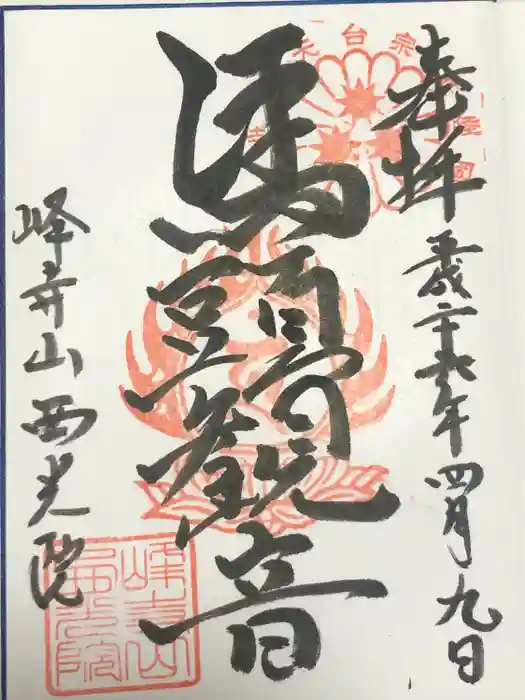 奉拝
平成二十六年四月九日
馬頭観音
峰寺山西光院
峰寺山
西光院